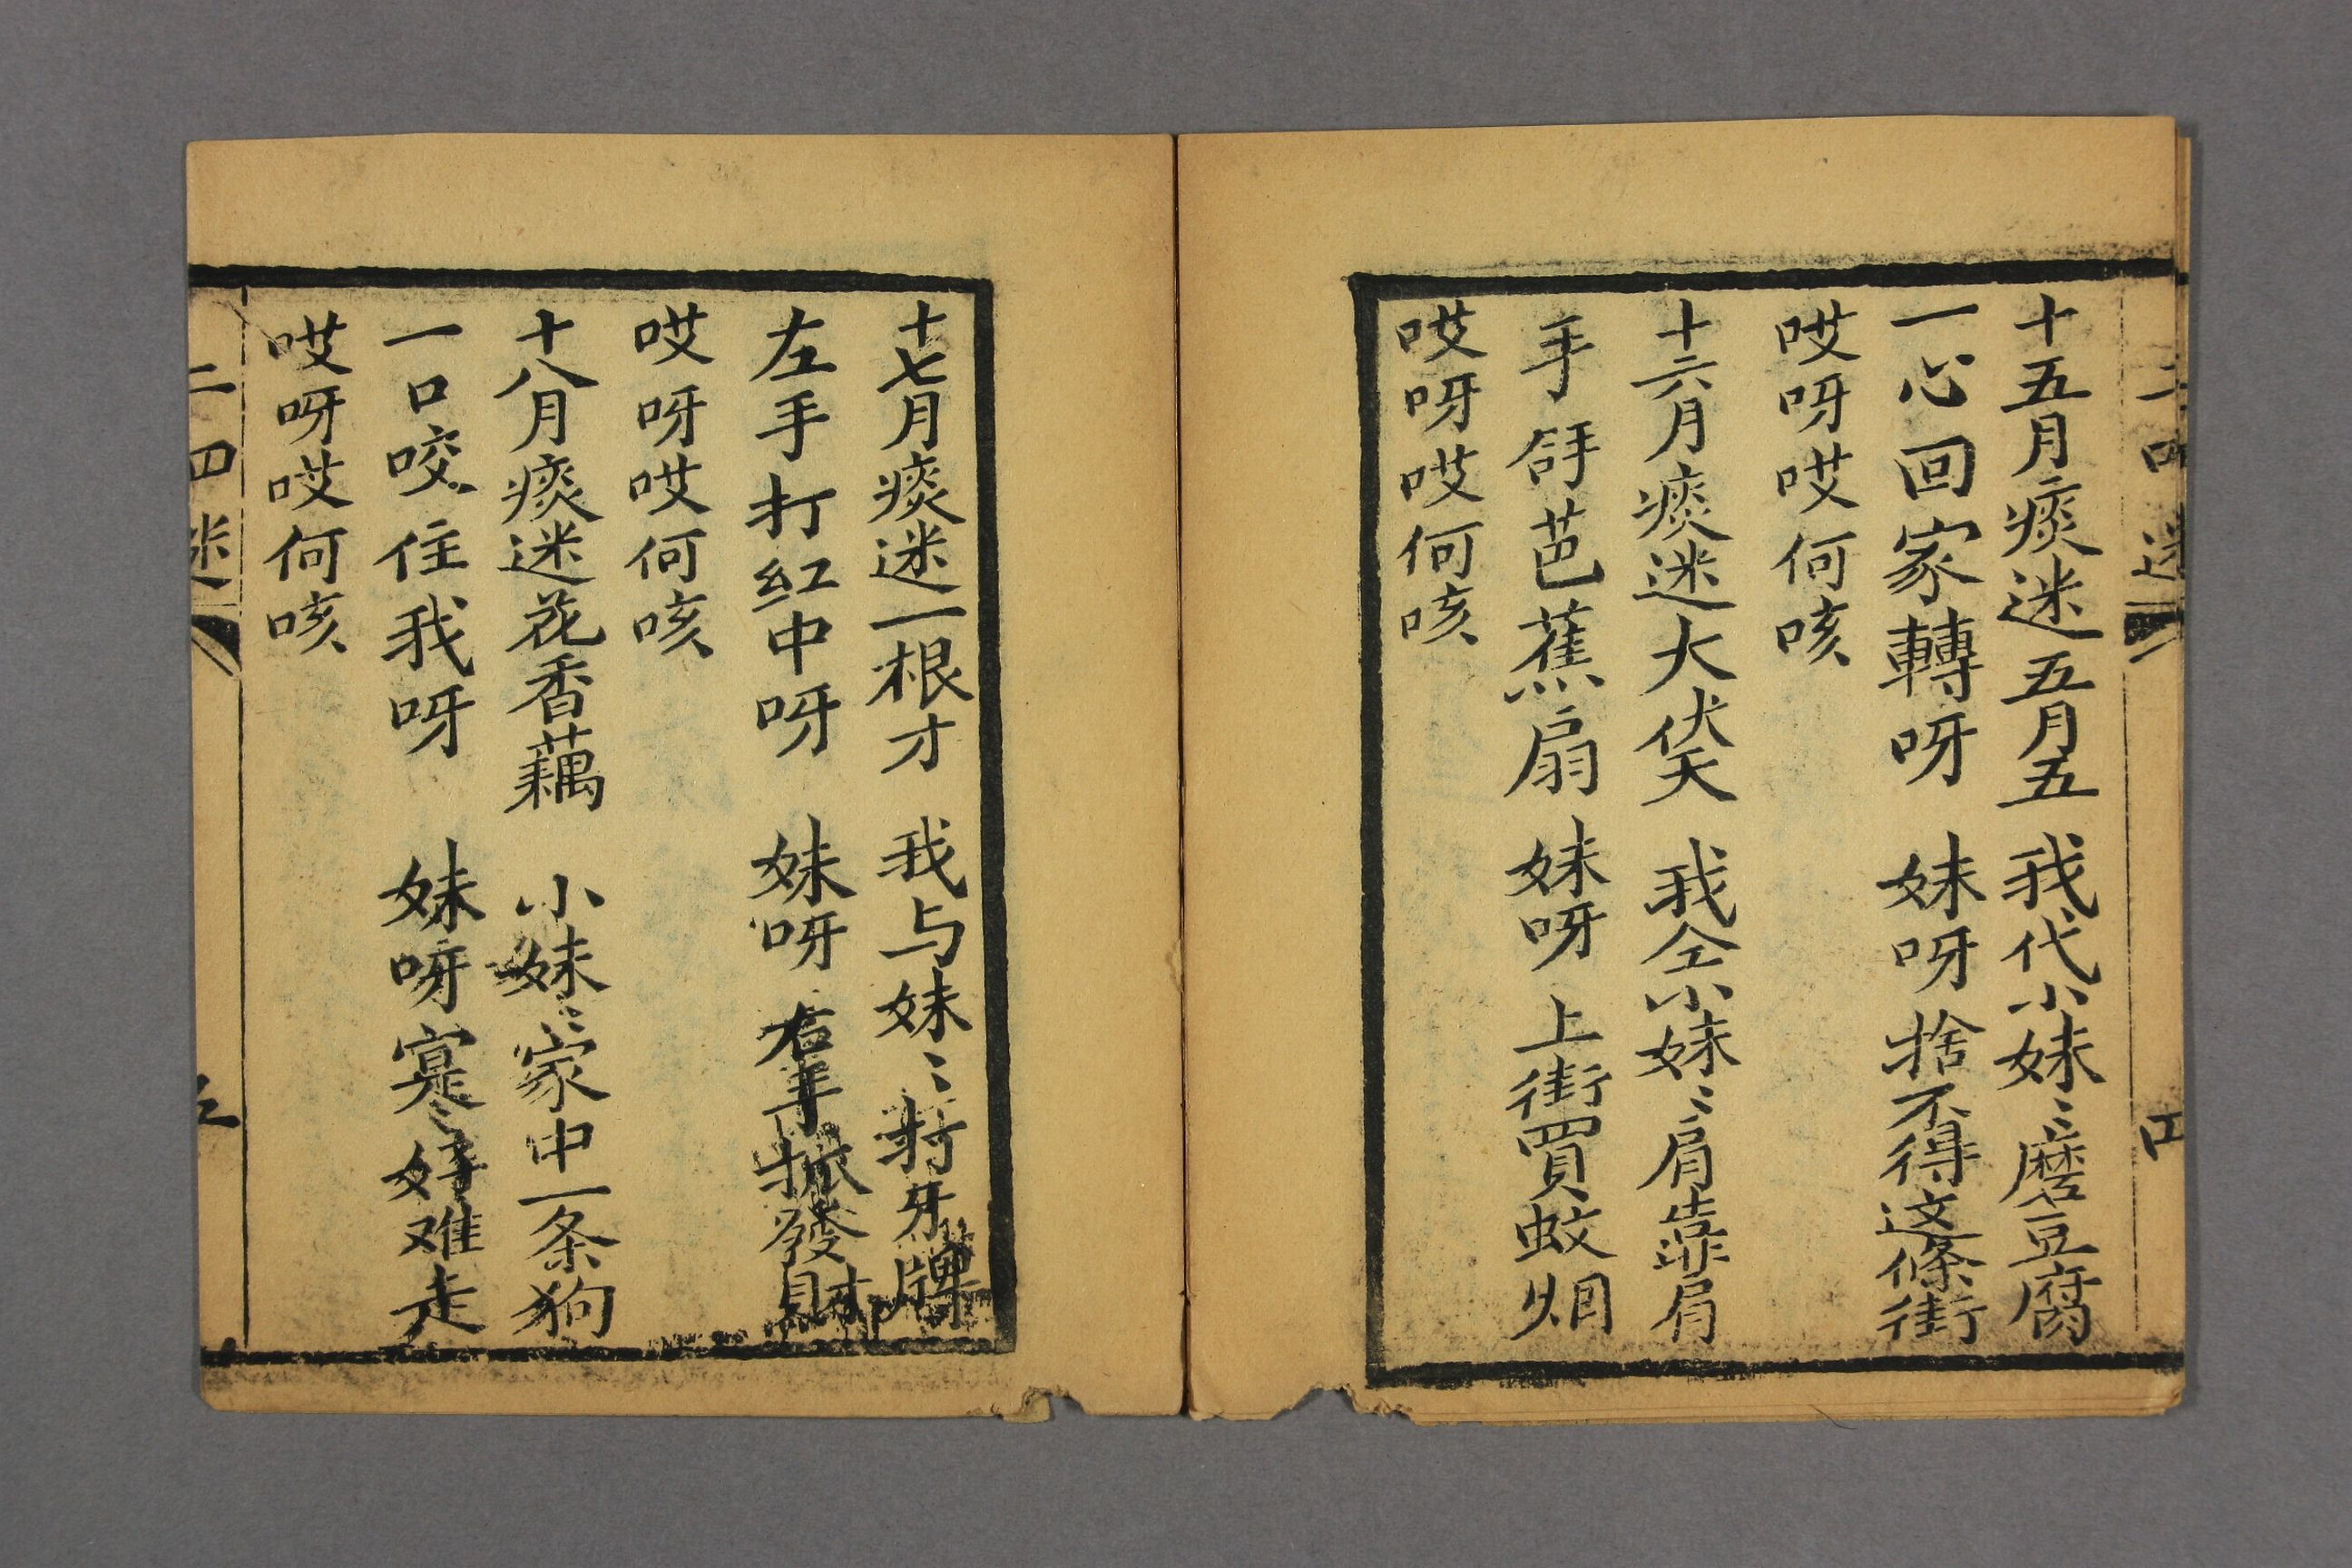 十五月痰迷五月五　我代小妹〻磨豆腐
一心回家轉呀　妹呀捨不得这條街
哎呀哎何咳
十六月痰迷大伏天　我仝小妹〻肩靠肩
手舒芭蕉扇　妹呀　上街買蚊烟
哎呀哎何咳
十七月痰迷一根才　我与妹〻打牙牌
左手打紅中呀　妹呀　右手抓發財
哎呀哎何咳
十八月痰迷花香藕　小妹〻家中一条狗
一口咬住我呀　妹呀寔〻好难走
哎呀哎何咳
二四迷